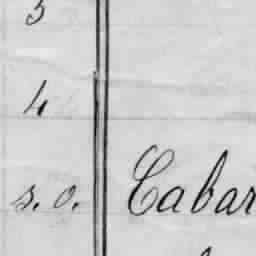 5
4
s. o. Cabar